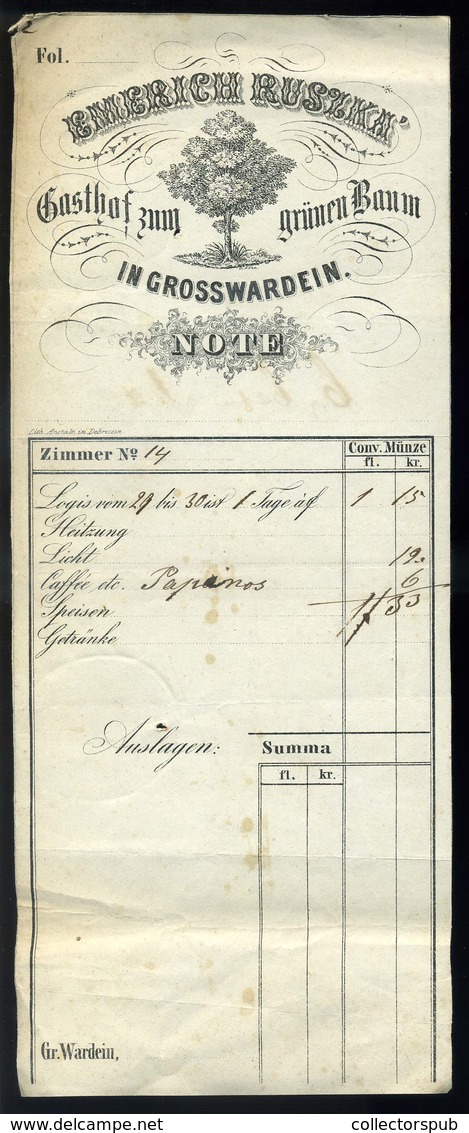 Fol.
EMERICH RUSZKA'
Gasthof zum grünen Baum
IN GROSSWARDEIN.
NOTE
Lith. Anstalt in Debreczin
Zimmer No 14 Conv. Münze
fl. kr.
Logis vom 29 bis 30 ist 1 Tage à f 1 15
Heitzung
Licht 12
Caffée etc. Papinos 6
Speisen 1 33
Getränke
Auslagen: Summa
fl. kr.
Gr. Wardein,
www.delcampe.net collectorspub